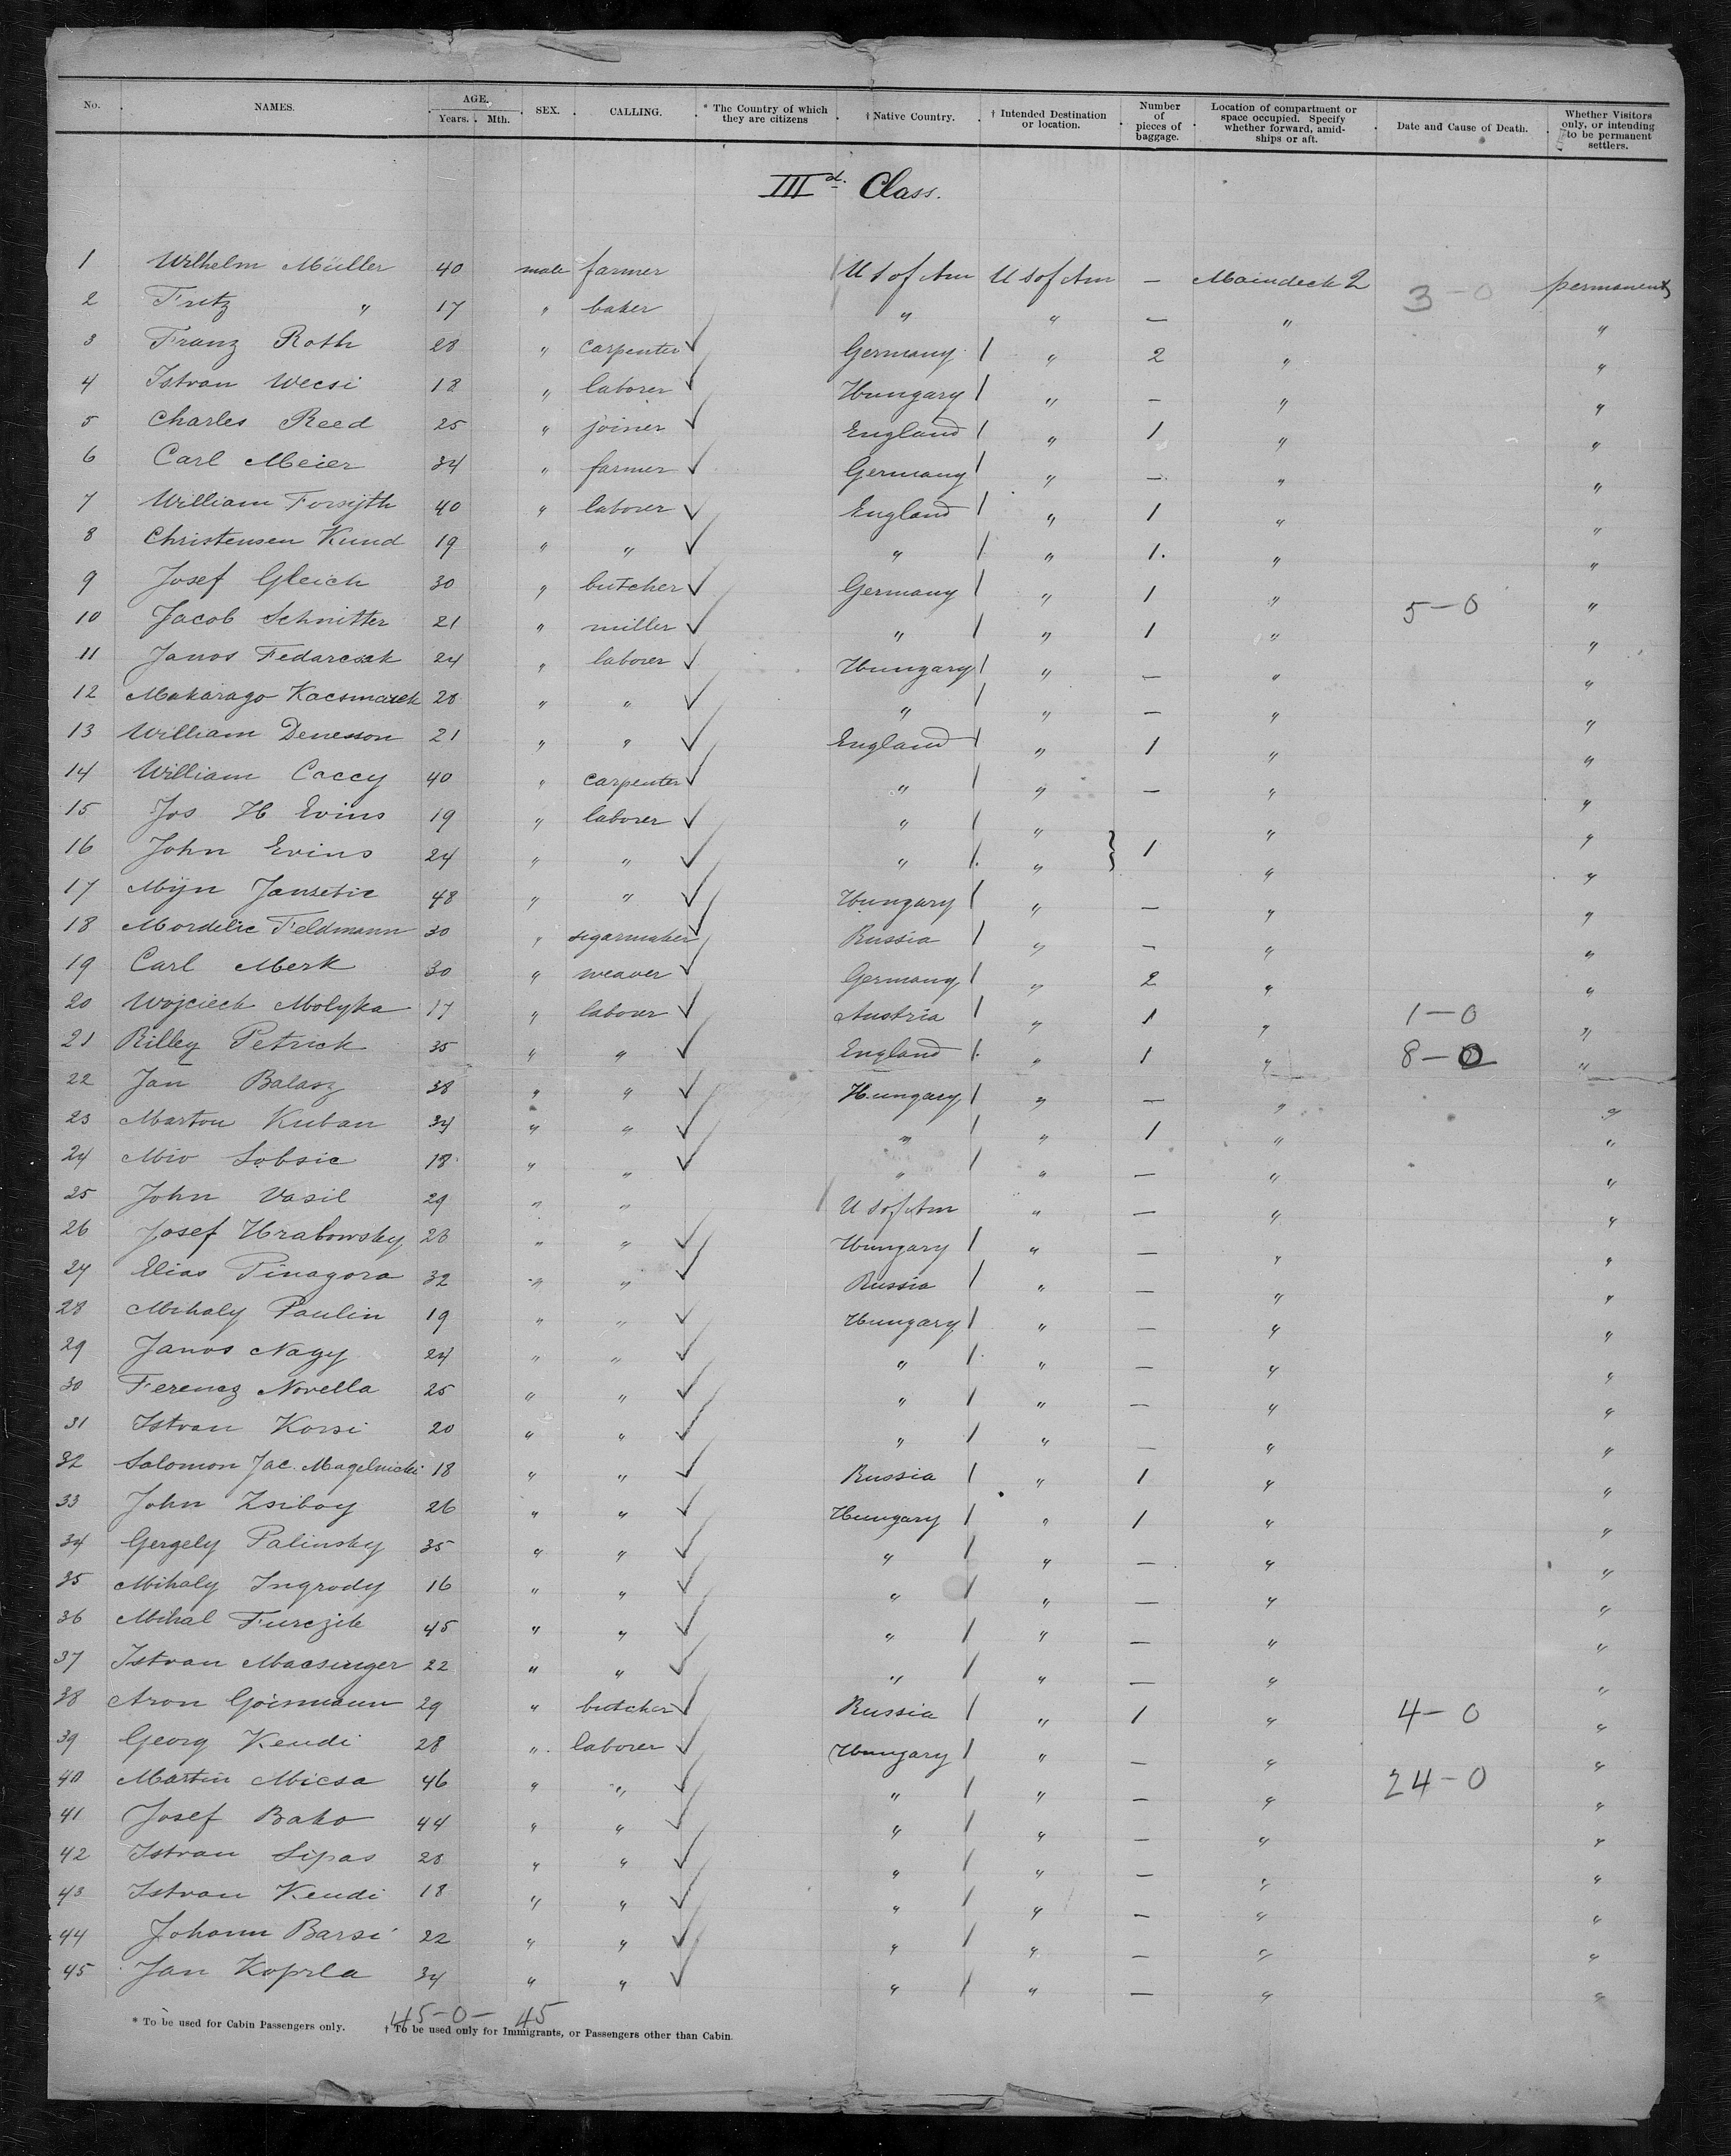 No. NAMES. AGE. Years. Mth. SEX. CALLING. * The Country of which they are citizens † Native Country. † Intended Destination or location. Number of pieces of baggage. Location of compartment or space occupied. Specify whether forward, amidships or aft. Date and Cause of Death. Whether Visitors only, or intending to be permanent settlers.
IIId. Class.
1 Wilhelm Müller 40 male farmer U S of Am U S of Am — Maindeck 2 3-0 permanent
2 Fritz " 17 " baker " " — " "
3 Franz Roth 28 " carpenter Germany " 2 " "
4 Istvan Wecsi 18 " laborer Hungary " — " "
5 Charles Reed 25 " joiner England " 1 " "
6 Carl Meier 34 " farmer Germany " — " "
7 William Forsÿth 40 " laborer England " 1 " "
8 Christensen Kund 19 " " " " 1. " "
9 Josef Gleich 30 " butcher Germany " 1 " "
10 Jacob Schnitter 21 " miller " " 1 " 5-0 "
11 Janos Fedarcsak 24 " laborer Hungary " — " "
12 Makarago Kacsmarek 28 " " " " — " "
13 William Denesson 21 " " England " 1 " "
14 William Caccy 40 " carpenter " " — " "
15 Jos H Evins 19 " laborer " " " "
16 John Evins 24 " " " " } 1 " "
17 Mijn Jansetic 48 " " Hungary " — " "
18 Mordelie Feldmann 30 " sigarmaker Russia " — " "
19 Carl Merk 30 " weaver Germany " 2 " "
20 Wojciech Molyka 17 " laborer Austria " 1 " 1-0 "
21 Rilley Petrick 35 " " England " 1 " 8-0 "
22 Jan Balasz 38 " " Hungary " — " "
23 Marton Kuban 34 " " " " 1 " "
24 Mio Sobsic 18 " " " " — " "
25 John Vasil 29 " " U S of Am " — " "
26 Josef Hrabowsky 28 " " Hungary " — " "
27 Elias Pinagora 32 " " Russia " — " "
28 Mihaly Paulin 19 " " Hungary " — " "
29 Janos Nagy 24 " " " " — " "
30 Ferencz Novella 25 " " " " — " "
31 Istvan Korsi 20 " " " " — " "
32 Salomon Jac. Magelnicki 18 " " Russia " 1 " "
33 John Zsiboy 26 " " Hungary " 1 " "
34 Gergely Palinsky 35 " " " " — " "
35 Mihaly Ingrody 16 " " " " — " "
36 Mihal Furczik 45 " " " " — " "
37 Istvan Macsinger 22 " " " " — " "
38 Aron Goismann 29 " butcher Russia " 1 " 4-0 "
39 Georg Kendi 28 " laborer Hungary " — " "
40 Martin Micsa 46 " " " " — " 24-0 "
41 Josef Bako 44 " " " " — " "
42 Istvan Sipas 28 " " " " — " "
43 Istvan Kendi 18 " " " " — " "
44 Johann Barsi 22 " " " " — " "
45 Jan Koprla 34 " " " " — " "
45-0-45
* To be used for Cabin Passengers only. † To be used only for Immigrants, or Passengers other than Cabin.